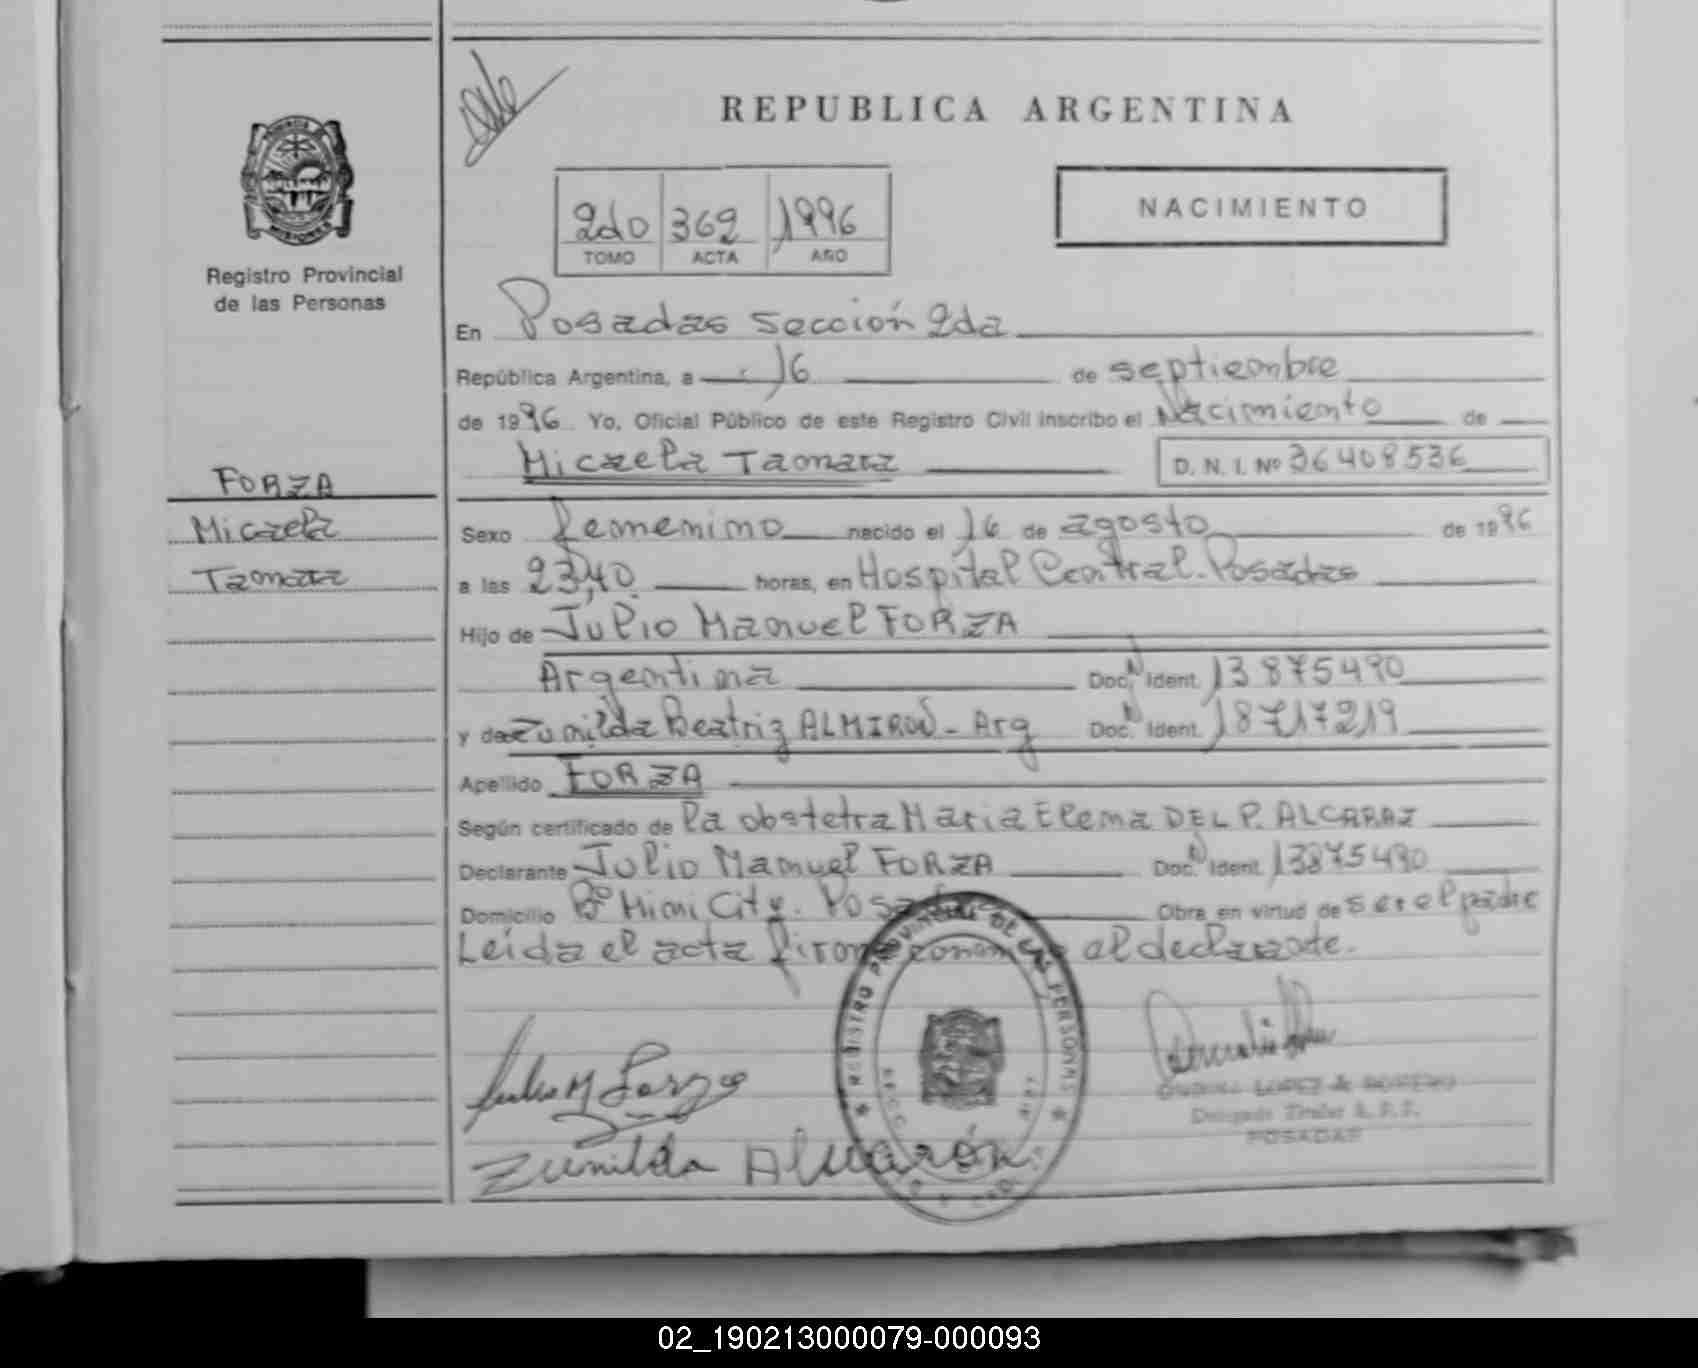 REPUBLICA ARGENTINA
2do 369 1996
TOMO ACTA AÑO
NACIMIENTO
Registro Provincial
de las Personas
En Posadas Sección 2da
República Argentina, a 16 de septiembre
de 1996 Yo, Oficial Público de este Registro Civil inscribo el Nacimiento de
Micaela Tamara D. N. I. Nº 36408536
FORZA
Micaela
Tamara
Sexo femenino nacido el 16 de agosto de 1996
a las 23,40 horas, en Hospital Central. Posadas
Hijo de Julio Manuel FORZA
Argentina Doc. N Ident. 13875490
y de Zunilda Beatriz ALMIRON - Arg Doc. N Ident. 18717219
Apellido FORZA
Según certificado de la obstetra Maria Elena DEL P. ALCARAZ
Declarante Julio Manuel FORZA Doc. N Ident. 13875490
Domicilio Bº Mini City. Posadas Obra en virtud de ser el padre
Leida el acta firman el declarante.
REGISTRO PROVINCIAL DE LAS PERSONAS
Julio M Forza
Zunilda Almirón
LOPEZ de
Delegado Titular R. P. P.
POSADAS
02_190213000079-000093